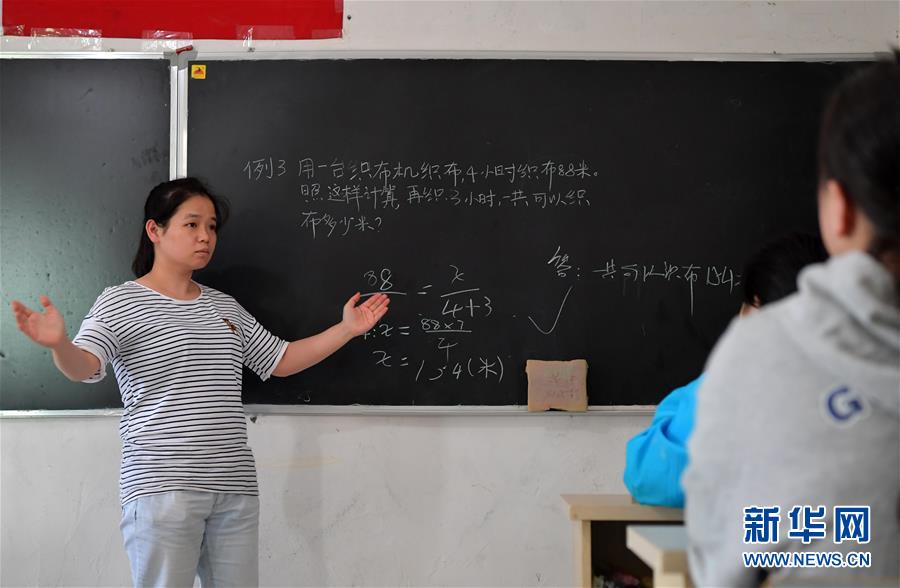 例3 用一台织布机织布,4小时织布88米。
照这样计算,再织3小时,一共可以织
布多少米?
88/ = x/4+3
x = 88×7/4
x = 154(米)
答:一共可以织布154
G
新华网
WWW.NEWS.CN